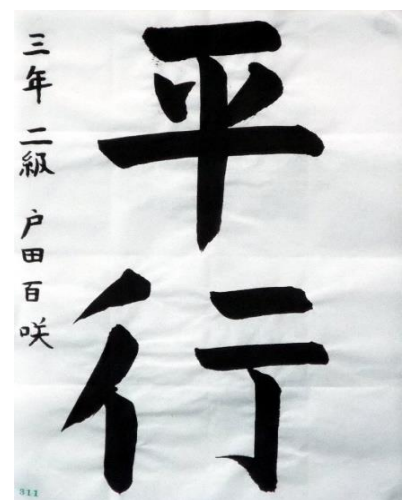 平行
三年 二級 戸田百咲
311